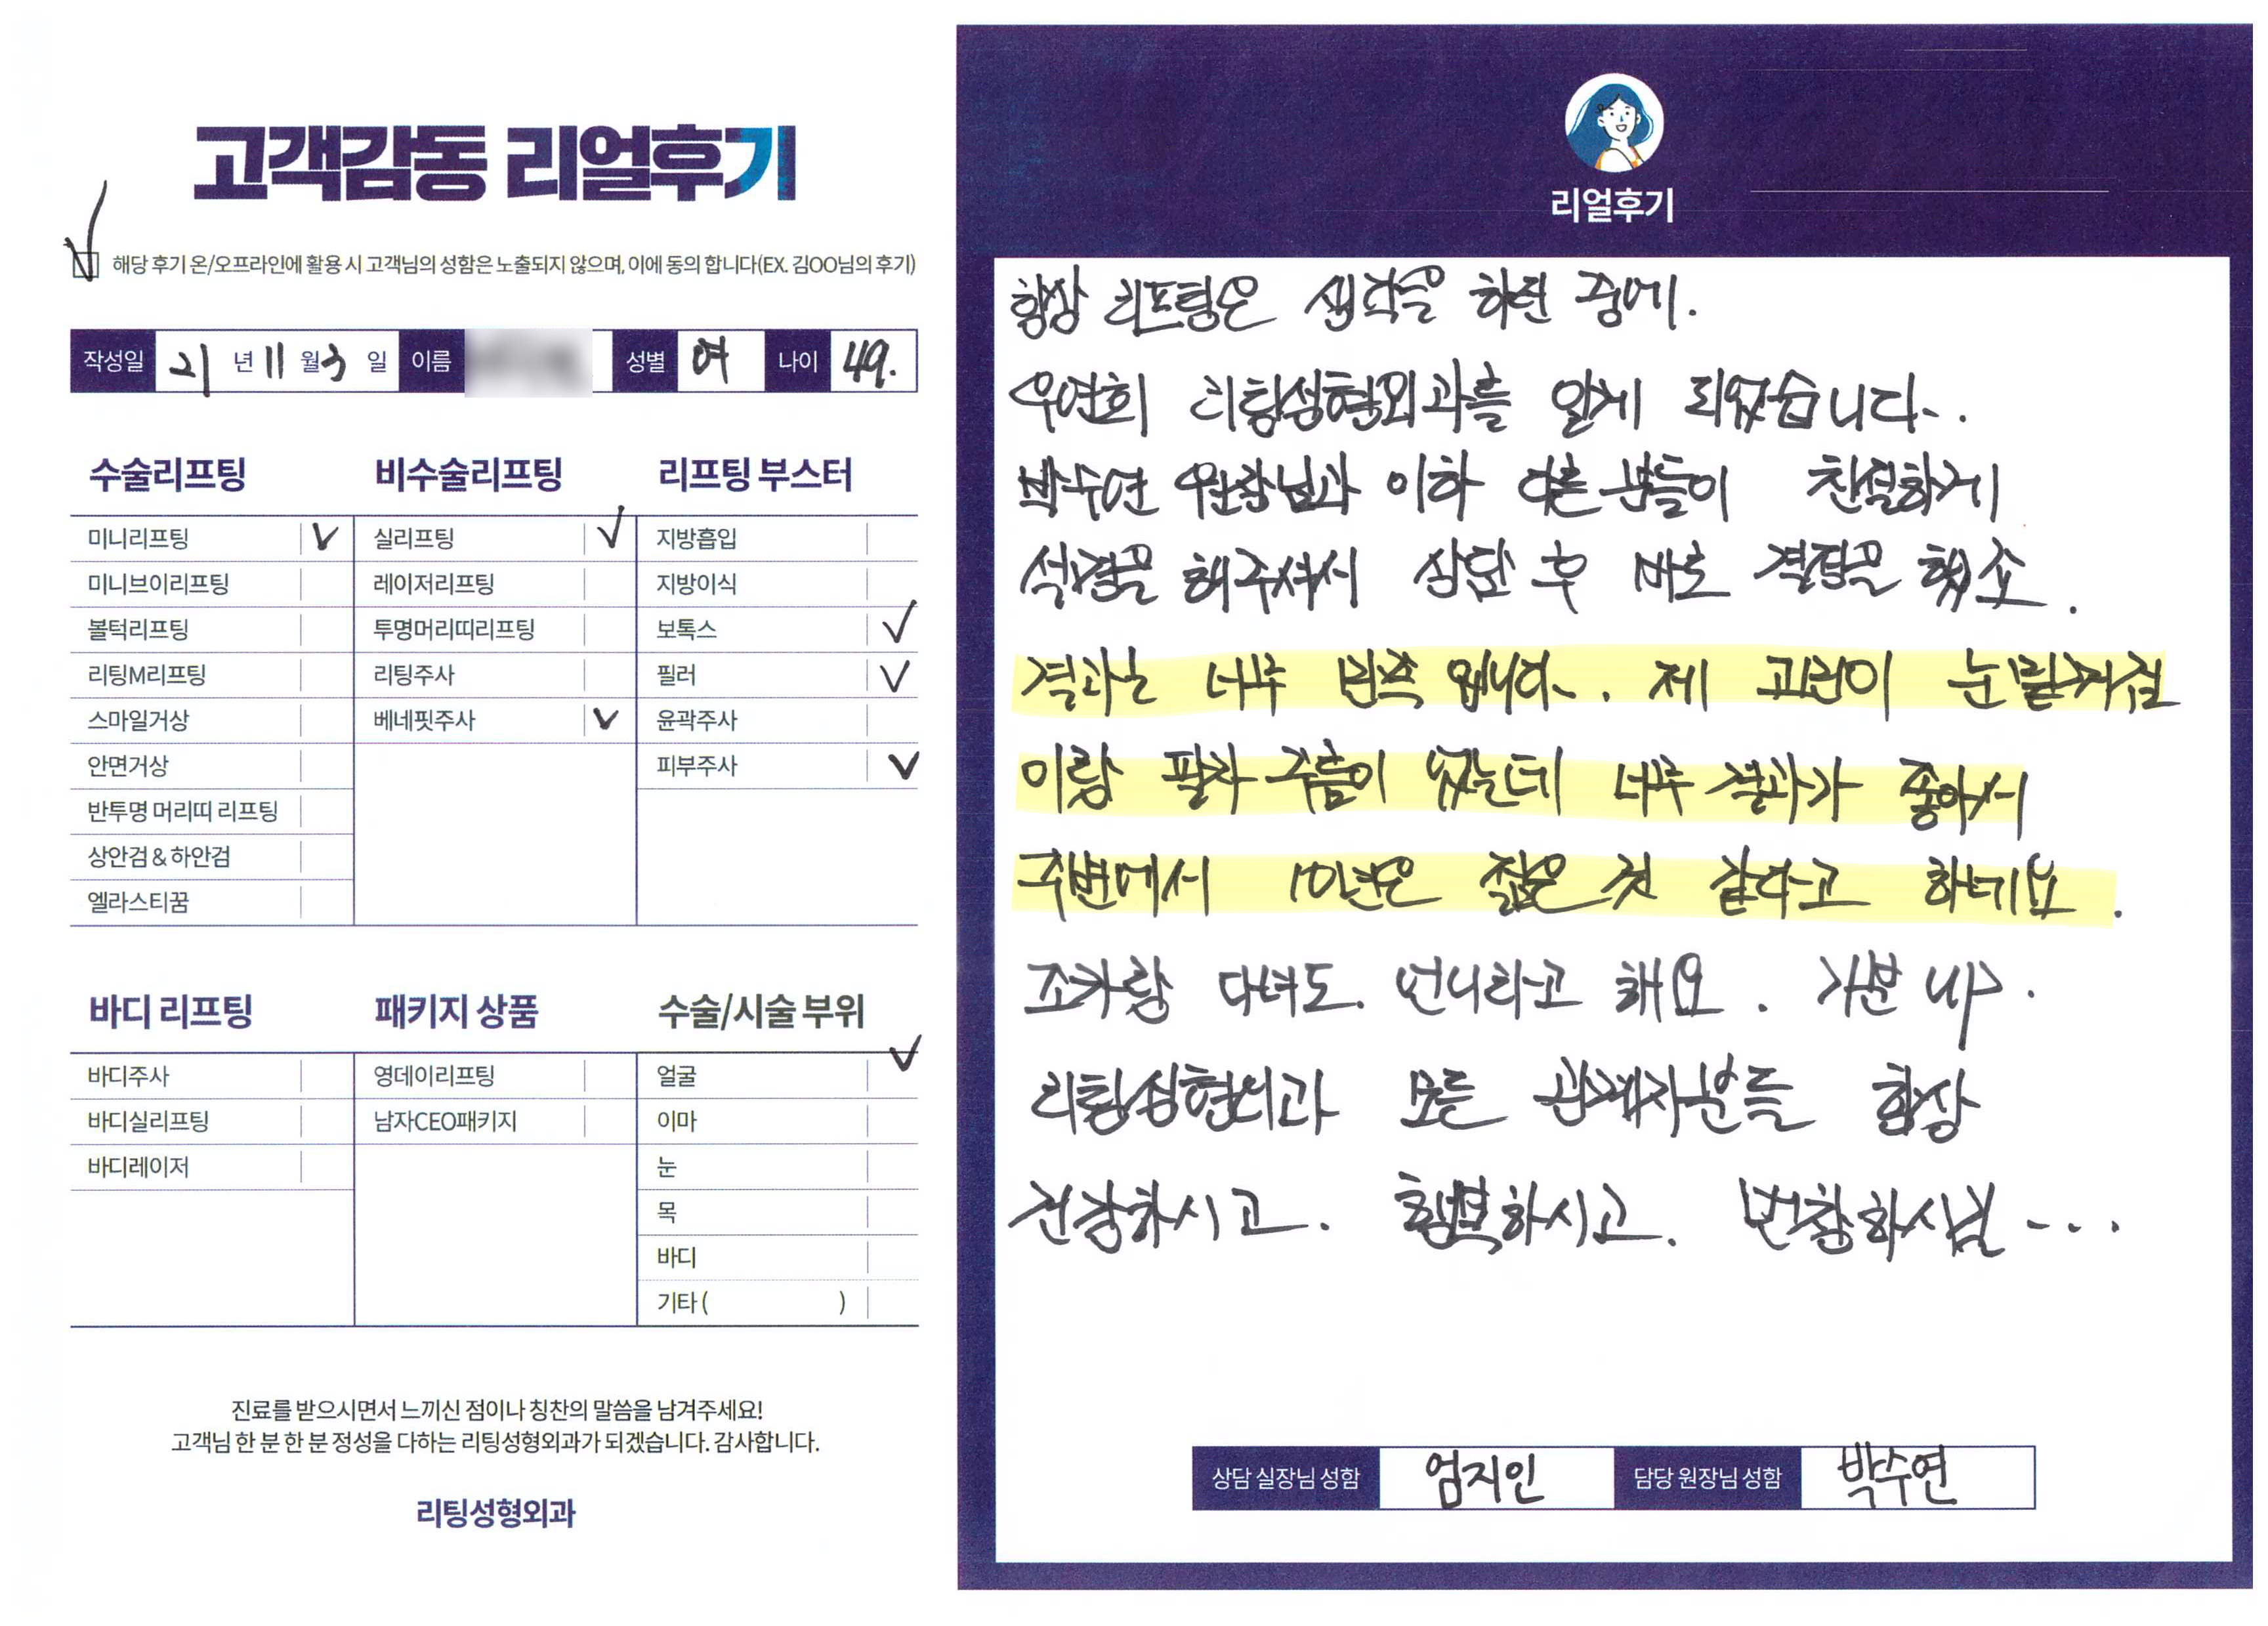 고객감동 리얼후기
해당 후기 온/오프라인에 활용 시 고객님의 성함은 노출되지 않으며, 이에 동의 합니다(EX. 김OO님의 후기)
작성일 21 년 11 월 3 일 이름 성별 여 나이 49.
수술리프팅
미니리프팅
미니브이리프팅
볼턱리프팅
리팅M리프팅
스마일거상
안면거상
반투명 머리띠 리프팅
상안검 & 하안검
엘라스티꿈
비수술리프팅
실리프팅
레이저리프팅
투명머리띠리프팅
리팅주사
베네핏주사
리프팅 부스터
지방흡입
지방이식
보톡스
필러
윤곽주사
피부주사
바디 리프팅
바디주사
바디실리프팅
바디레이저
패키지 상품
영데이리프팅
남자CEO패키지
수술/시술 부위
얼굴
이마
눈
목
바디
기타 ( )
진료를 받으시면서 느끼신 점이나 칭찬의 말씀을 남겨주세요!
고객님 한 분 한 분 정성을 다하는 리팅성형외과가 되겠습니다. 감사합니다.
리팅성형외과
리얼후기
항상 리프팅은 생각을 하던 중에.
우연히 리팅성형외과를 알게 되었습니다.
박수연 원장님과 이하 다른 분들이 친절하게
설명을 해주셔서 상담 후 바로 결정을 했죠.
결과는 너무 만족 입니다. 제 고민이 눈밑꺼짐
이랑 팔자 주름이 있는데 너무 결과가 좋아서
주변에서 10년은 젊은 것 같다고 하네요.
조카랑 다녀도. 언니라고 해요. 기분 up.
리팅성형외과 모든 관계자분들 항상
건강하시고. 행복하시고. 번창하시길 ...
상담 실장님 성함 엄지인 담당 원장님 성함 박수연